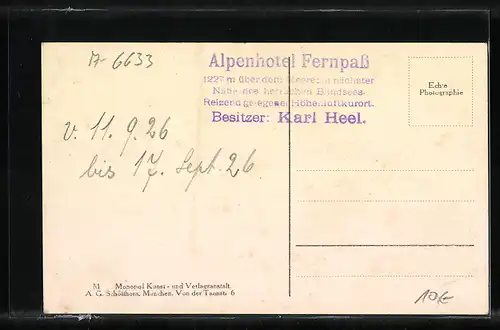 A-6633
Alpenhotel Fernpaß
1227 m über dem Meere in nächster
Nähe des herrlichen Blindsees
Reizend gelegener Höhenluftkurort.
Besitzer: Karl Heel.
Echte
Photographie
v. 11. 9. 26
bis 17. Sept. 26
M Monopol Kunst- und Verlagsanstalt
A. G. Schöllhorn, München, Von der Tannstr 6
10€